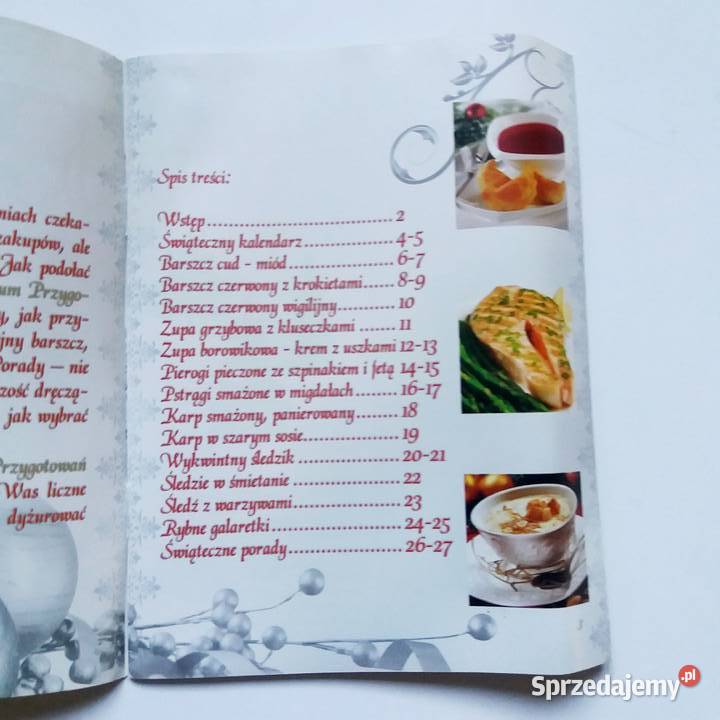 niach czeka-
zakupów, ale
Jak podołać
um Przygo-
y, jak przy-
jny barszcz,
Porady – nie
zość dręczą-
jak wybrać
Przygotowań
Was liczne
dyżurować
Spis treści:
Wstęp.................................. 2
Świąteczny kalendarz................ 4-5
Barszcz cud - miód.................... 6-7
Barszcz czerwony z krokietami...... 8-9
Barszcz czerwony wigilijny.......... 10
Zupa grzybowa z kluseczkami ....... 11
Zupa borowikowa - krem z uszkami 12-13
Pierogi pieczone ze szpinakiem i fetą 14-15
Pstrągi smażone w migdałach........ 16-17
Karp smażony, panierowany........ 18
Karp w szarym sosie.................. 19
Wykwintny śledzik ................... 20-21
Śledzie w śmietanie .................... 22
Śledź z warzywami.................... 23
Rybne galaretki........................ 24-25
Świąteczne porady..................... 26-27
3
Sprzedajemy.pl